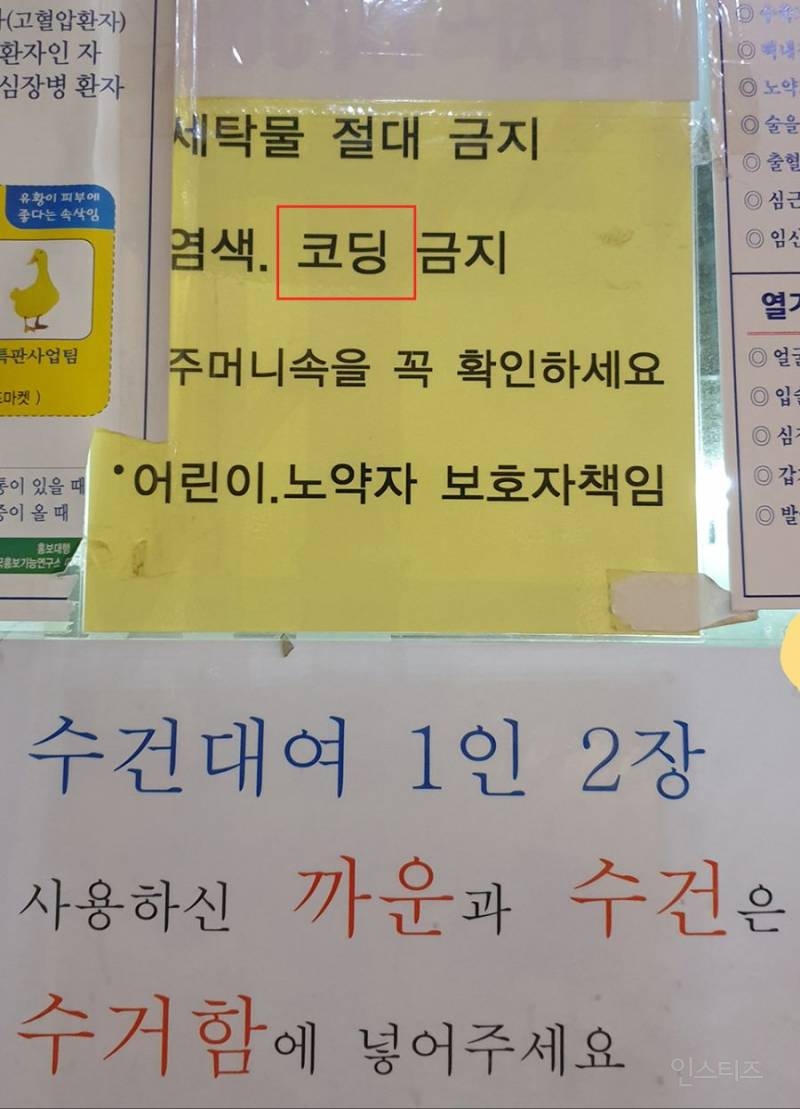 (고혈압환자)
환자인 자
심장병 환자
유황이 피부에
좋다는 속삭임
특판사업팀
마켓 )
이 있을 때
이 올 때
홍보대행
세탁물 절대 금지
염색. 코딩 금지
주머니속을 꼭 확인하세요
•어린이.노약자 보호자책임
◎
◎
◎ 노약
◎ 술을
◎ 출혈
◎ 심근
◎ 임산
열기
◎ 얼굴
◎ 입술
◎ 심
◎ 갑
◎ 발
수건대여 1인 2장
사용하신 까운과 수건은
수거함에 넣어주세요
인스티즈